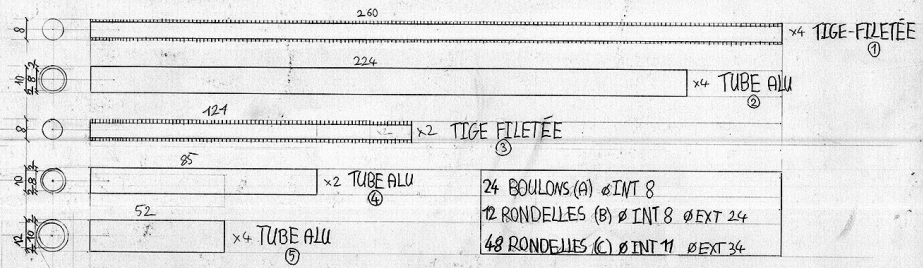 260
8 ×4 TIGE-FILETÉE
①
224
2 8 2 10 ×4 TUBE ALU
②
121
8 ×2 TIGE FILETÉE
③
85
2 8 2 10 ×2 TUBE ALU
④
52
2 10 2 12 ×4 TUBE ALU
⑤
24 BOULONS (A) ø INT 8
12 RONDELLES (B) ø INT 8 ø EXT 24
48 RONDELLES (C) ø INT 11 ø EXT 34